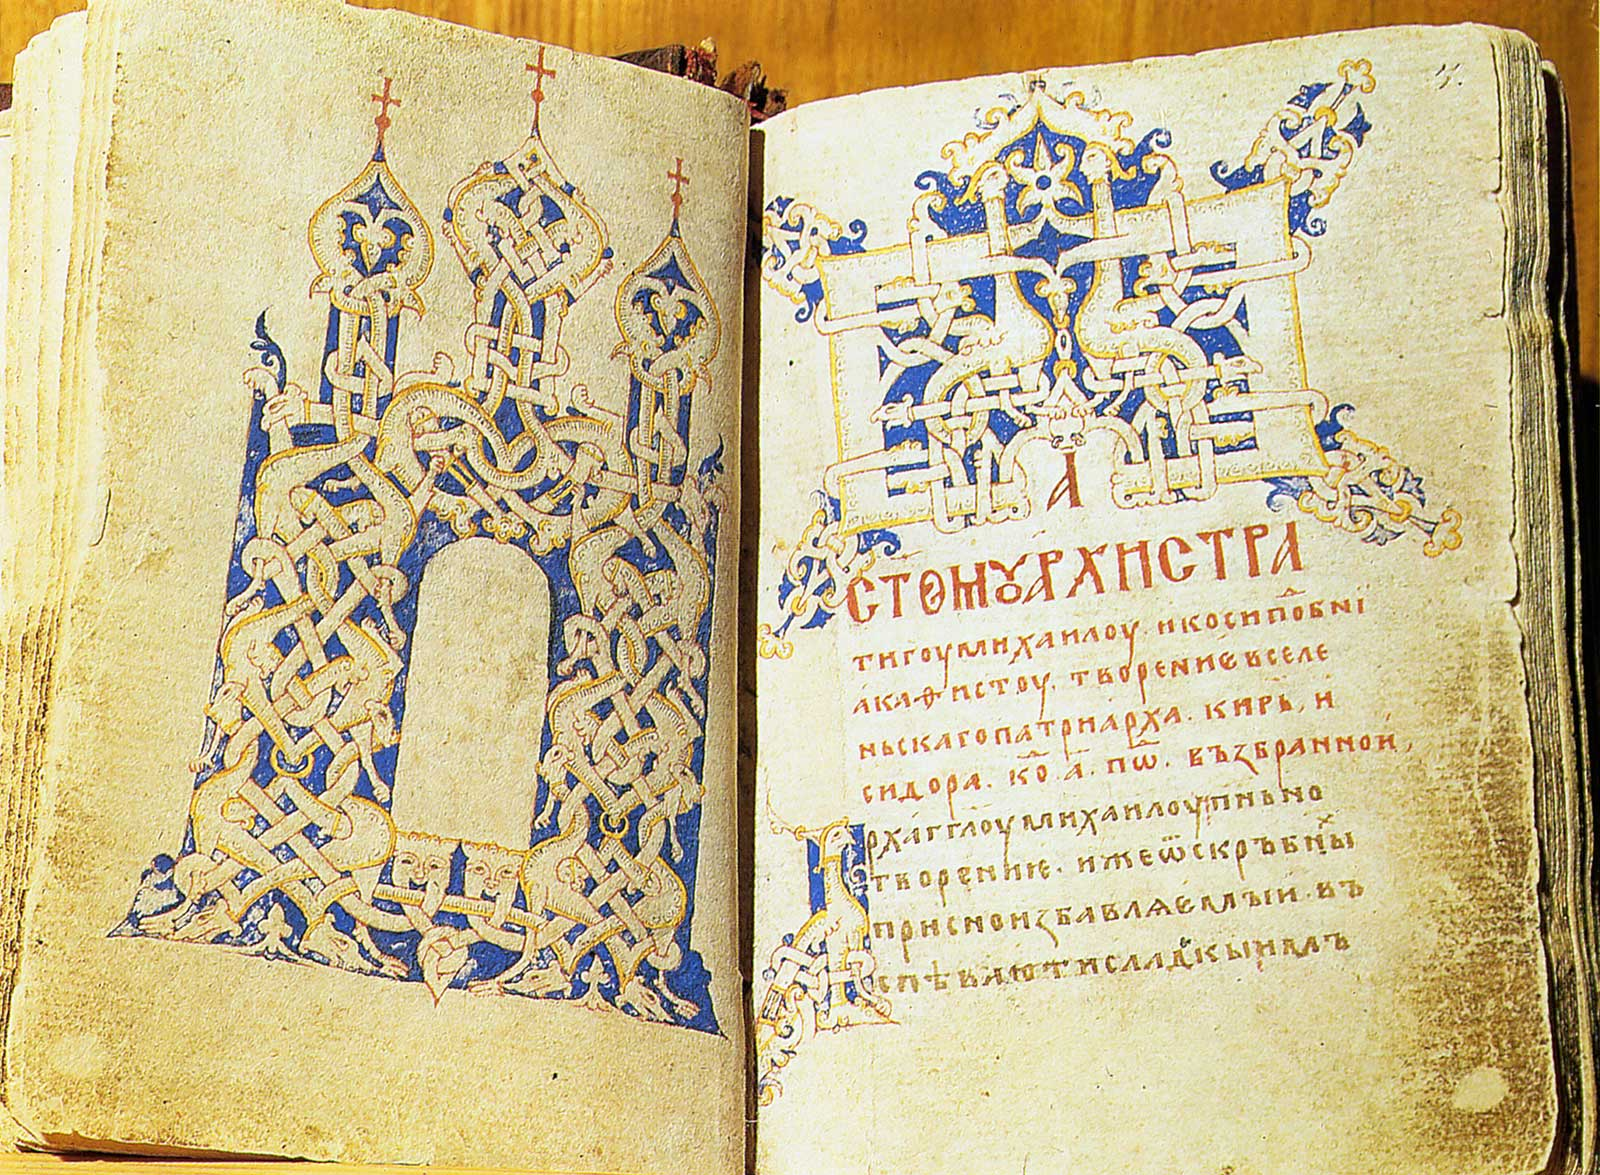 А
СТОМꙊАРХИСТРА
тигоу михаилоу. и косипо́бні
акаѳистоу. творение вселе
ньскаго патриарха. кирь, и
сидора. ко҃. а҃. пѡ҃. възбранной,
рха́гг҃лоу михаилоу пѣ́но
творение. иже ѿ скръбны̆х
присно избавлѧемыи. въ
спѣваютисладкыимъ